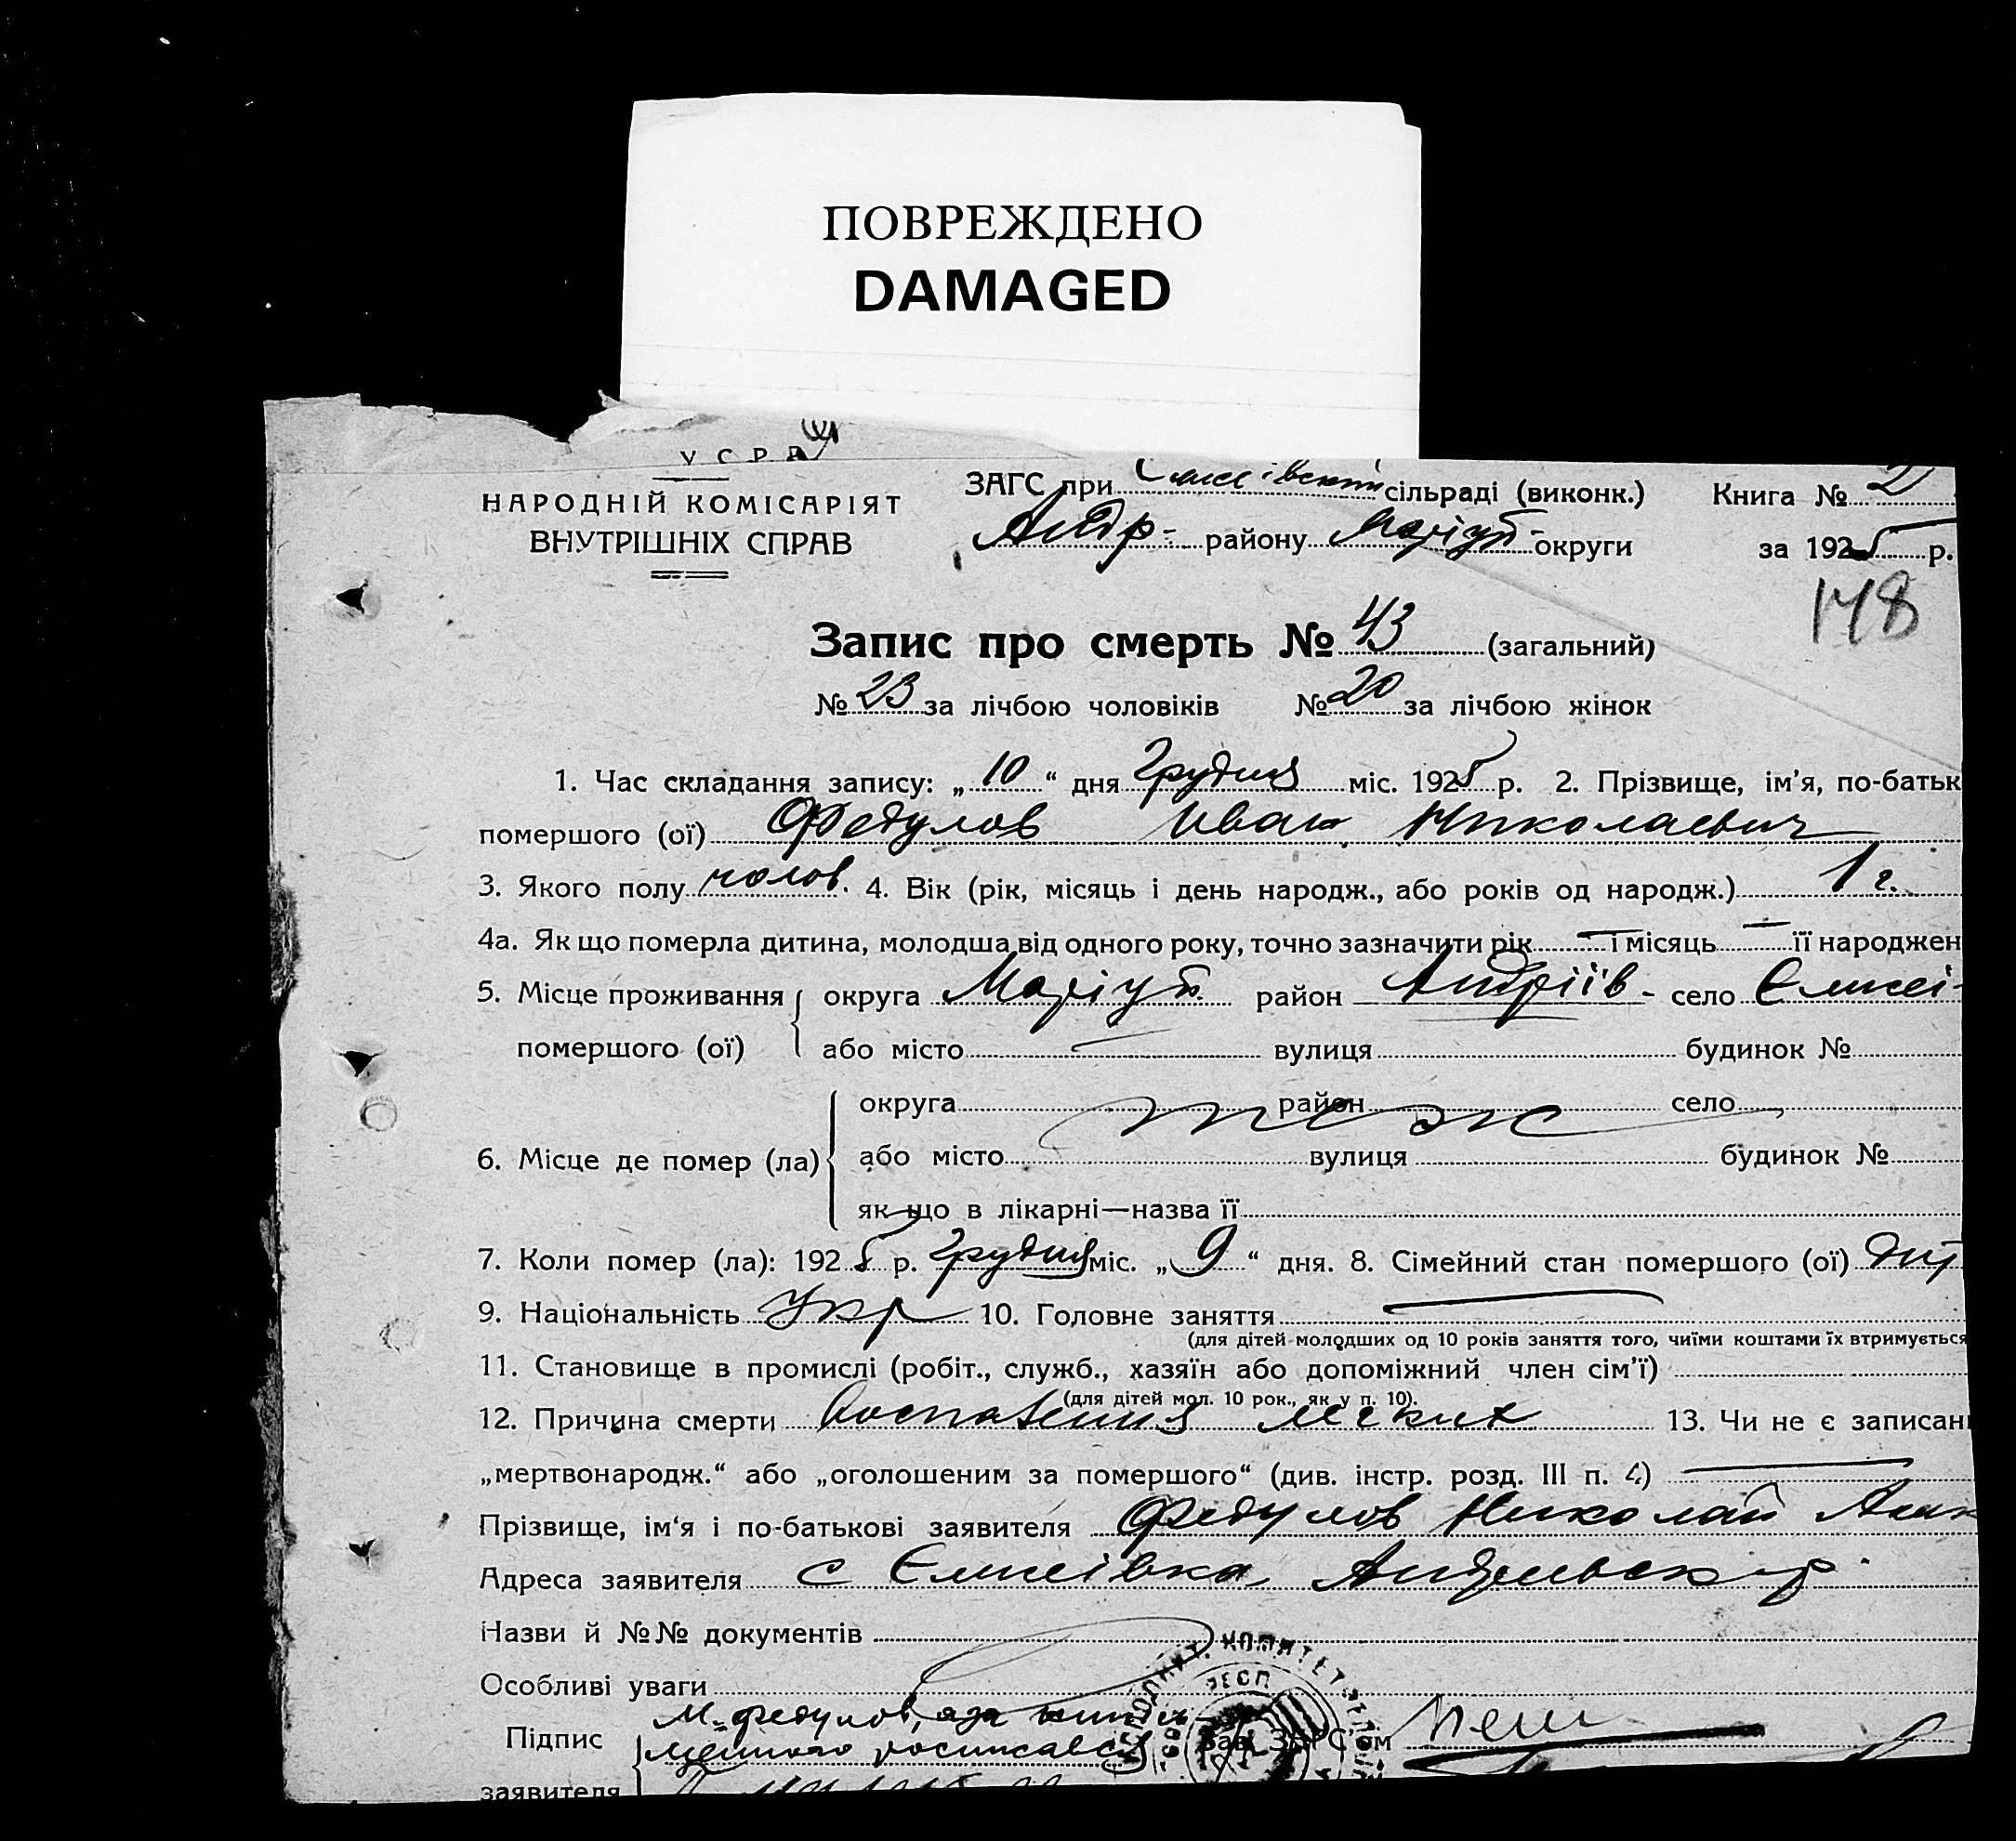 ПОВРЕЖДЕНО
DAMAGED
У С Р Р
НАРОДНІЙ КОМІСАРІЯТ
ВНУТРІШНІХ СПРАВ
ЗАГС при сільраді (виконк.) Книга № 2
Андр- району Маріуп- округи за 1925 р.
148
Запис про смерть № 43 (загальний)
№ 23 за лічбою чоловіків № 20 за лічбою жінок
1. Час складання запису: „10“ дня Грудня міс. 1925 р. 2. Прізвище, ім'я, по-батьк
помершого (ої) Федулов Иван Николаевич
3. Якого полу чолов. 4. Вік (рік, місяць і день народж., або років од народж.) 1 г.
4а. Як що померла дитина, молодша від одного року, точно зазначити рік — і місяць — її народжен
5. Місце проживання округа Маріуп. район Андріїв- село Єлисеі-
помершого (ої) або місто — вулиця будинок №
округа район село
теж
6. Місце де помер (ла) або місто вулиця будинок №
як що в лікарні—назва її
7. Коли помер (ла): 1925 р. Грудня міс. „9“ дня. 8. Сімейний стан помершого (ої) дит
9. Національність Укр 10. Головне заняття —
(для дітей молодших од 10 років заняття того, чиїми коштами їх втримується
11. Становище в промислі (робіт., служб., хазяїн або допоміжний член сім'ї)
(для дітей мол. 10 рок., як у п. 10).
12. Причина смерти Воспаления легких 13. Чи не є записан
„мертвонародж.“ або „оголошеним за помершого“ (див. інстр. розд. III п. 4) —
Прізвище, ім'я і по-батькові заявителя Федулов Николай
Адреса заявителя с Єлисеівка, р.
Назви й №№ документів
Особливі уваги
М. Федулов, а за
Підпис росписався Зав. ЗАГС'ом
заявителя